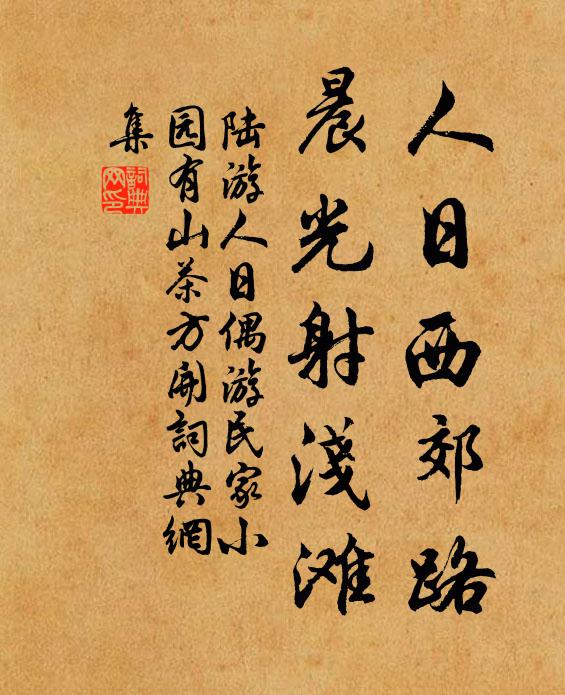 人日西郊路
晨光射淺滩
陆游人日偶游民家小
园有山茶方開詞典網
集
詞典
网印